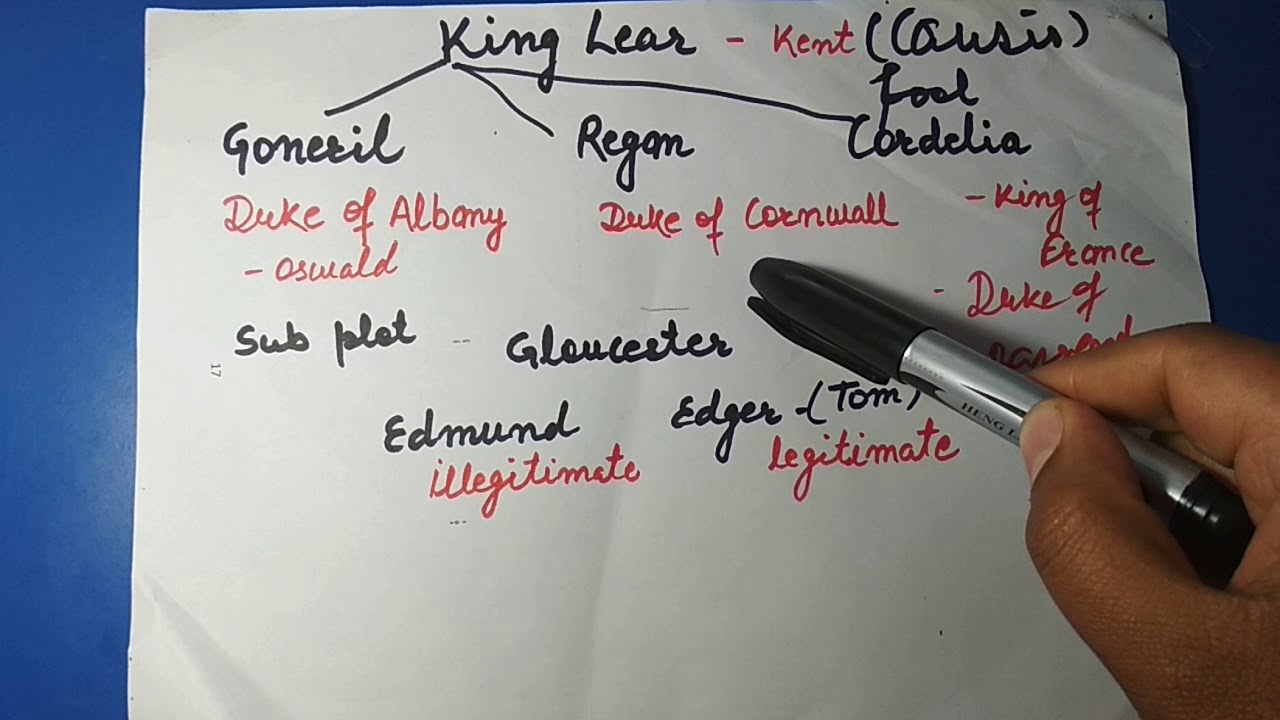 King Lear - Kent (Causis)
fool
Goneril Regan Cordelia
Duke of Albany Duke of Cornwall - King of
- Oswald France
- Duke of
Sub plot -- Gloucester
Edmund Edger - (Tom)
illegitimate legitimate
17
HENG